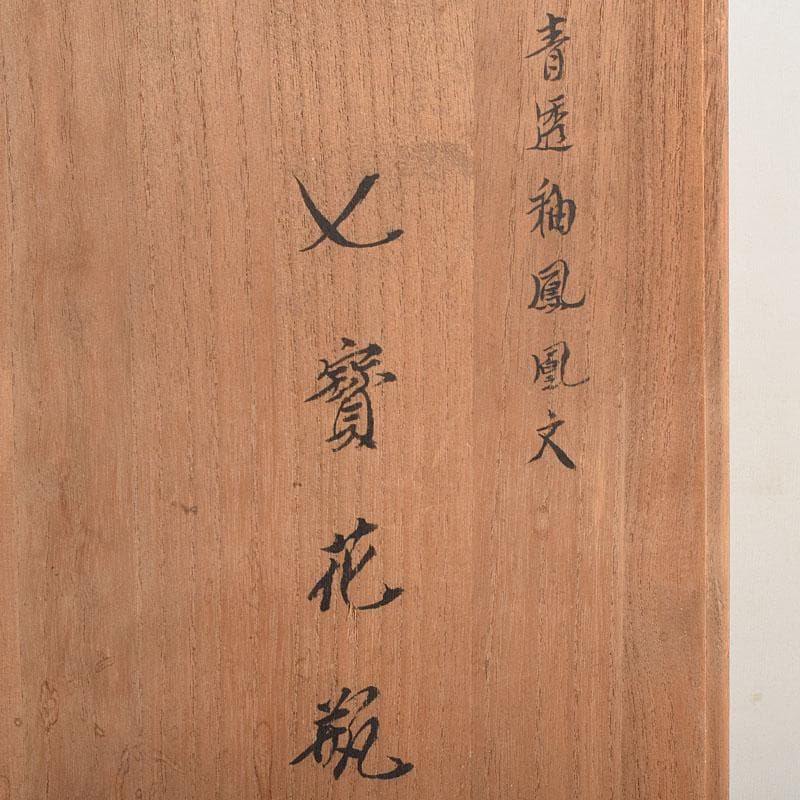 青透釉鳳凰文
七寶花瓶